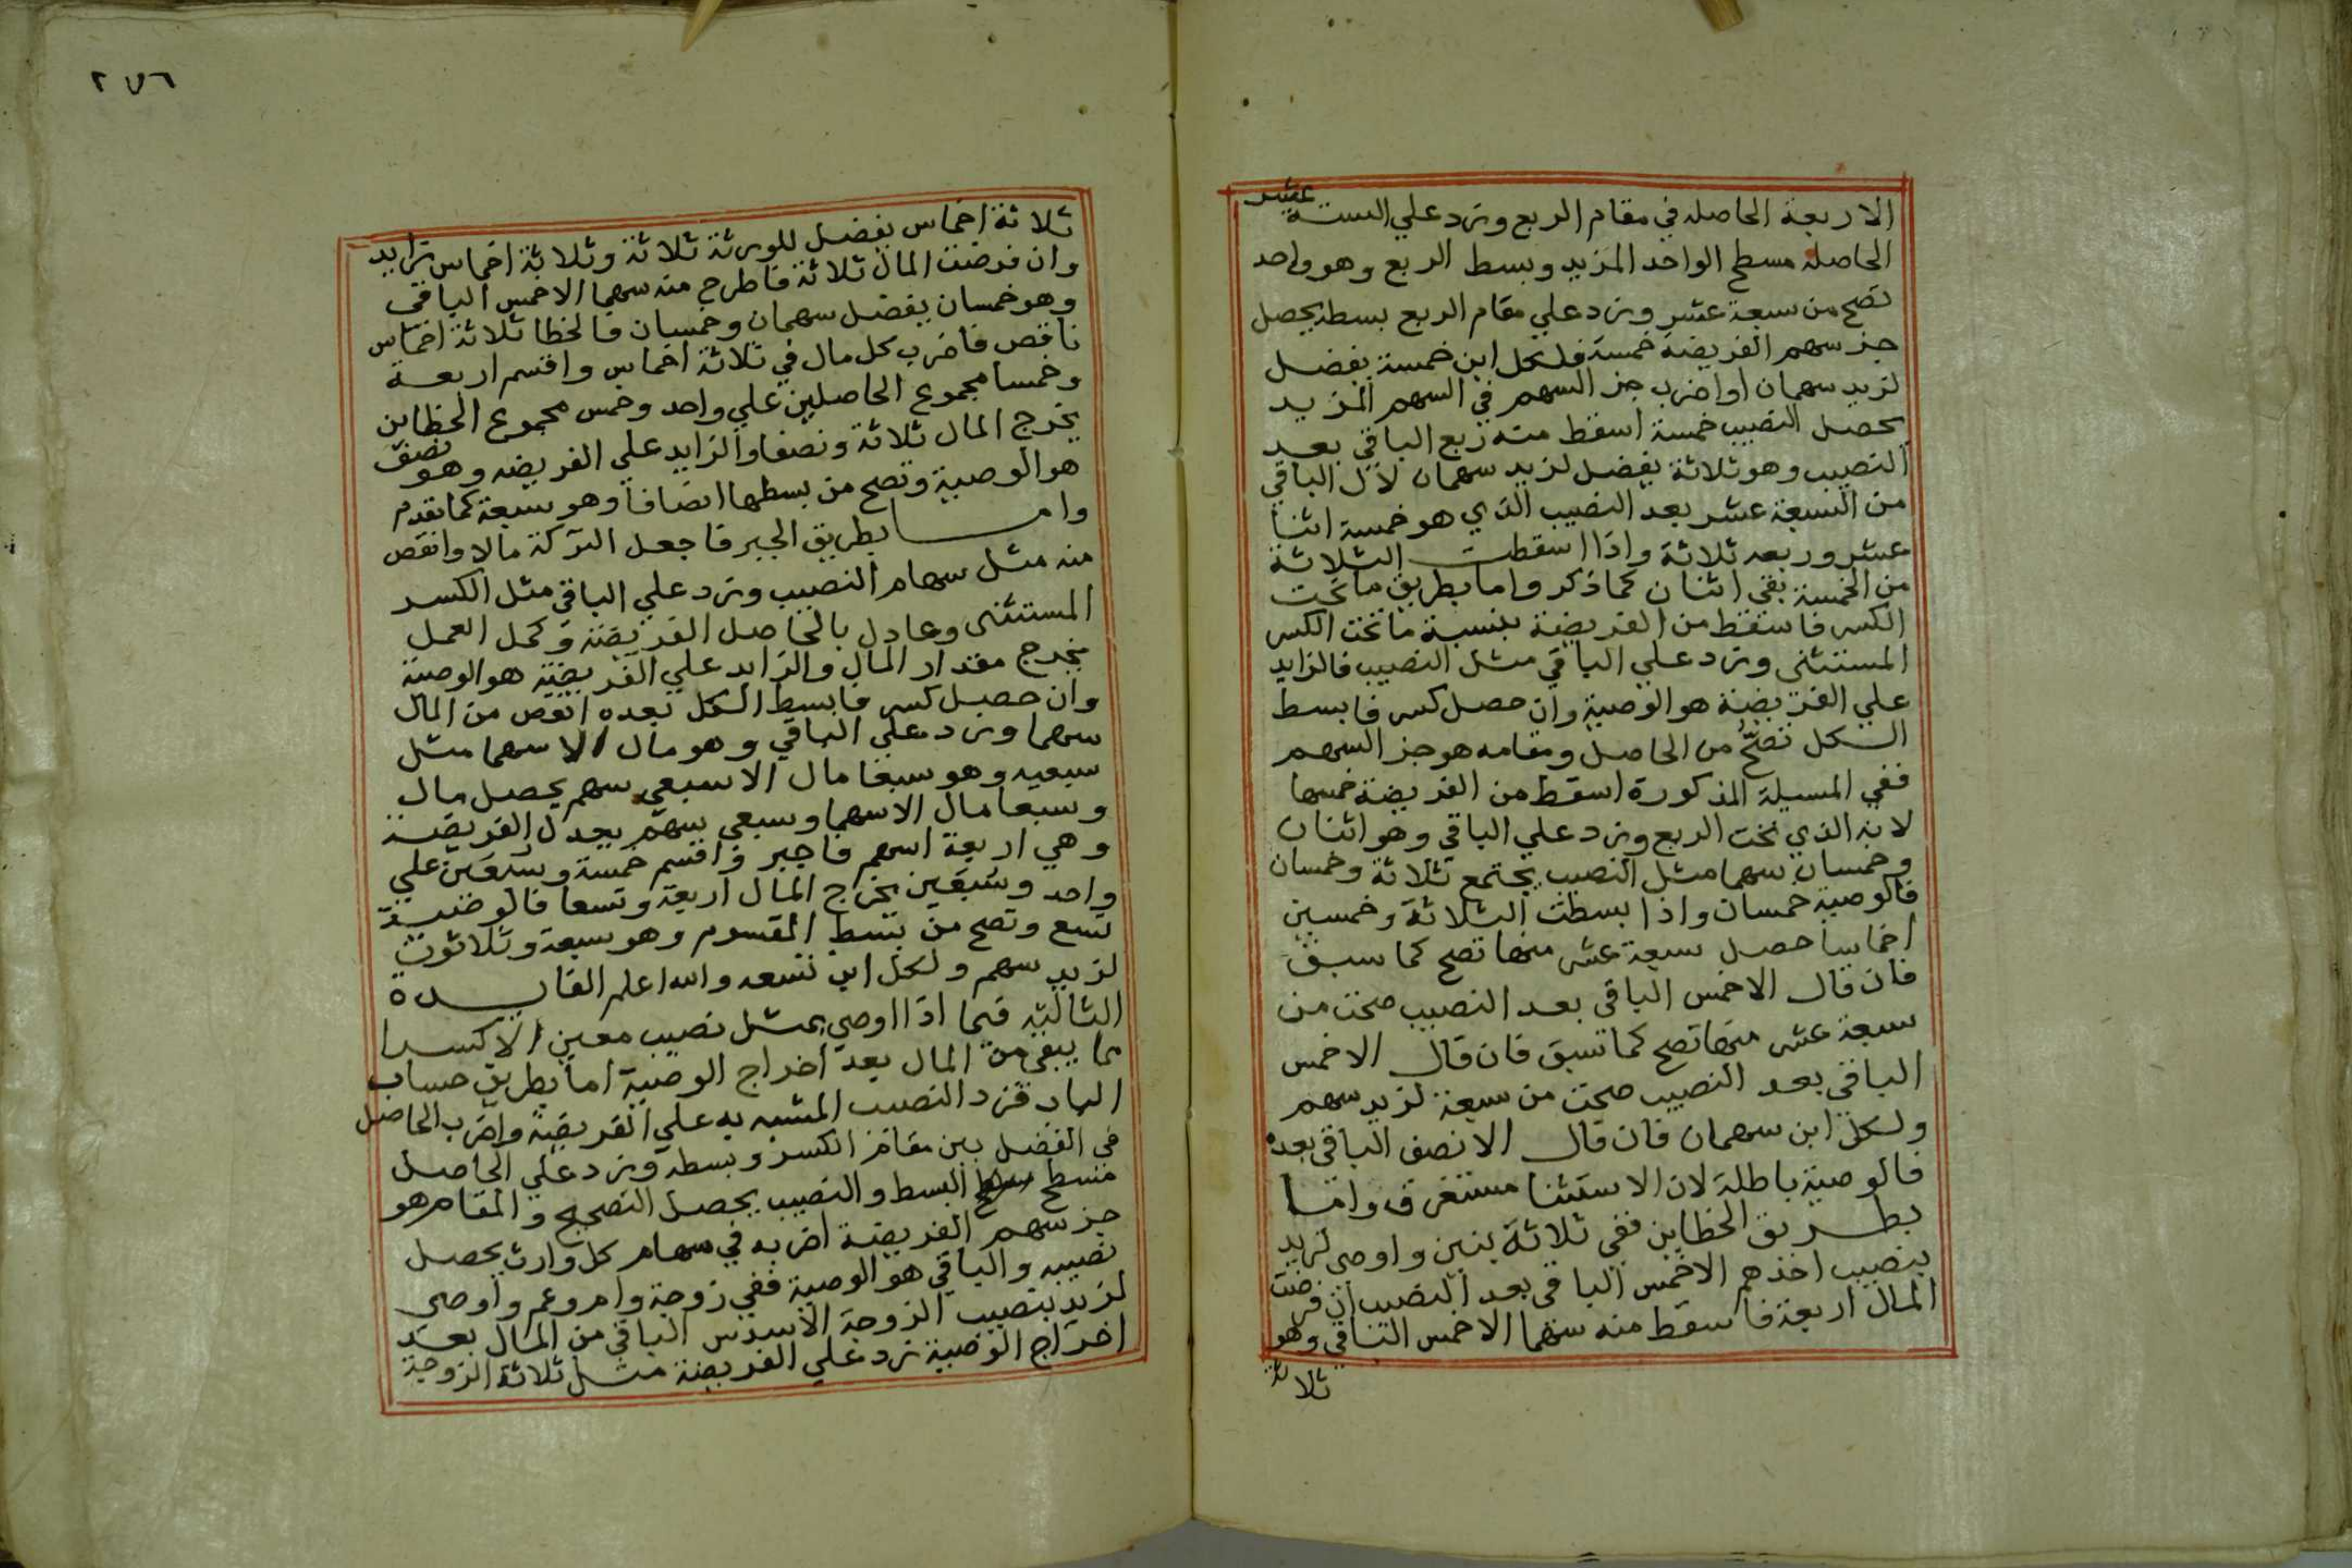 الاربعة الحاصله في مقام الربع وزد علي الستة عشر
الحاصلة مسطح الواحد المزيد وبسط الربع وهو واحد
تصح من سبعة عشر وزد علي مقام الربع بسطه يحصل
جز سهم الفريضة خمسة فلكل ابن خمسة يفضل
لزيد سهمان او اضرب جز السهم في السهم المزيد
يحصل النصيب خمسة اسقط منه ربع الباقي بعد
النصيب وهو ثلاثة يفضل لزيد سهمان لان الباقي
من السبعة عشر بعد النصيب الذي هو خمسة اثنا
عشر وربعه ثلاثة واذا اسقطت الثلاثة
من الخمسة بقي اثنان كما ذكر واما بطريق ما تحت
الكسر فاسقط من الفريضة بنسبة ما تحت الكسر
المستثنى وزد علي الباقي مثل النصيب فالزايد
علي الفريضة هو الوصية وان حصل كسر فابسط
الكل تصح من الحاصل ومقامه هو جز السهم
ففي المسيلة المذكورة اسقط من الفريضة خمسها
لانه الذي تحت الربع وزد علي الباقي وهو اثنان
وخمسان سهما مثل النصيب يجتمع ثلاثة وخمسان
فالوصية خمسان واذا بسطت الثلاثة وخمسين
اخماسا حصل سبعة عشر منها تصح كما سبق
فان قال الاخمس الباقي بعد النصيب صحت من
سبعة عشر منها تصح كما تسبق فان قال الاخمس
الباقي بعد النصيب صحت من سبعة لزيد سهم
ولكل ابن سهمان فان قال الا نصف الباقي بعده
فالوصية باطلة لان الاستثنا مستغرق واما
بطريق الخطاين ففي ثلاثة بنين واوصى لزيد
بنصيب احدهم الاخمس الباقي بعد النصيب ان فرضت
المال اربعة فاسقط منه سهما الاخمس الباقي وهو
ثلاثة
٢٧٦
ثلاثة اخماس يفضل للورثة ثلاثة وثلاثة اخماس تزايد
وان فرضت المال ثلاثة فاطرح منه سهما الاخمس الباقي
وهو خمسان يفضل سهمان وخمسان فالخطا ثلاثة اخماس
ناقص فاضرب كل مال في ثلاثة اخماس واقسم اربعة
وخمسا مجموع الحاصلين علي واحد وخمس مجموع الخطاين
يخرج المال ثلاثة ونصفا والزايد علي الفريضه وهو نصف
هو الوصية وتصح من بسطها انصافا وهو سبعة كما تقدم
واما بطريق الجبر فاجعل التركة مالا وانقص
منه مثل سهام النصيب وزد علي الباقي مثل الكسر
المستثنى وعادل بالحاصل الفريضة وكمل العمل
يخرج مقدار المال والزايد علي الفريضة هو الوصية
وان حصل كسر فابسط الكل بعده انقص من المال
سهما وزد علي الباقي وهو مال الا سهما مثل
سبعيه وهو سبعا مال الا سبعي سهم يحصل مال
وسبعا مال الا سهما وسبعي سهم يعدل الفريضة
وهي اربعة اسهم فاجبر واقسم خمسة وسبعين علي
واحد وسبعين يخرج المال اربعة وتسعا فالوصية
تسع وتصح من بسط المقسوم وهو سبعة وثلاثون
لزيد سهم ولكل ابن تسعه والله اعلم الفايدة
الثالثة فيما اذا اوصي بمثل نصيب معين الا كسرا
مما يبقي من المال بعد اخراج الوصية اما بطريق حساب
الباب فزد النصيب المشبه به علي الفريضة واضرب الحاصل
في الفضل بين مقام الكسر وبسطه وزد علي الحاصل
مسطح البسط والنصيب يحصل التصحيح والمقام هو
جز سهم الفريضة اضربه في سهام كل وارث يحصل
نصيبه والباقي هو الوصية ففي زوجة وام وعم واوصى
لزيد بنصيب الزوجة الاسدس الباقي من المال بعد
اخراج الوصية زد علي الفريضة مثل ثلاثة الزوجة